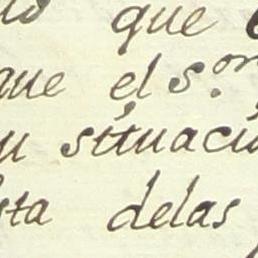 que
que el s.or
situació
sta delas